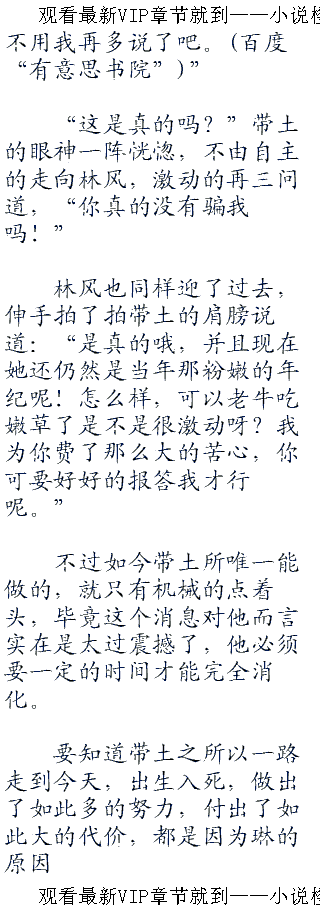 观看最新VIP章节就到——小说
不用我再多说了吧。(百度
“有意思书院”)”
“这是真的吗？”带土
的眼神一阵恍惚，不由自主
的走向林风，激动的再三问
道，“你真的没有骗我
吗！”
林风也同样迎了过去，
伸手拍了拍带土的肩膀说
道：“是真的哦，并且现在
她还仍然是当年那粉嫩的年
纪呢！怎么样，可以老牛吃
嫩草了是不是很激动呀？我
为你费了那么大的苦心，你
可要好好的报答我才行
呢。”
不过如今带土所唯一能
做的，就只有机械的点着
头，毕竟这个消息对他而言
实在是太过震撼了，他必须
要一定的时间才能完全消
化。
要知道带土之所以一路
走到今天，出生入死，做出
了如此多的努力，付出了如
此大的代价，都是因为琳的
原因
观看最新VIP章节就到——小说